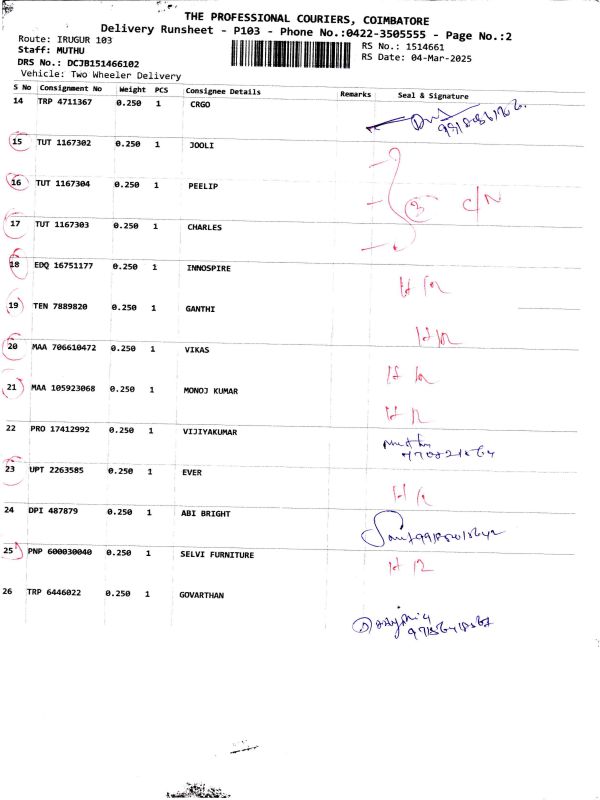 THE PROFESSIONAL COURIERS, COIMBATORE
Delivery Runsheet - P103 - Phone No.:0422-3505555 - Page No.:2
Route: IRUGUR 103
RS No.: 1514661
Staff: MUTHU
RS Date: 04-Mar-2025
DRS No.: DCJB151466102
Vehicle: Two Wheeler Delivery
S No Consignment No Weight PCS Consignee Details Remarks Seal & Signature
14 TRP 4711367 0.250 1 CRGO
15 TUT 1167302 0.250 1 JOOLI
16 TUT 1167304 0.250 1 PEELIP
3 C/N
17 TUT 1167303 0.250 1 CHARLES
18 EDQ 16751177 0.250 1 INNOSPIRE
19 TEN 7889820 0.250 1 GANTHI
20 MAA 706610472 0.250 1 VIKAS
21 MAA 105923068 0.250 1 MONOJ KUMAR
22 PRO 17412992 0.250 1 VIJIYAKUMAR
23 UPT 2263585 0.250 1 EVER
24 DPI 487879 0.250 1 ABI BRIGHT
25 PNP 600030040 0.250 1 SELVI FURNITURE
26 TRP 6446022 0.250 1 GOVARTHAN